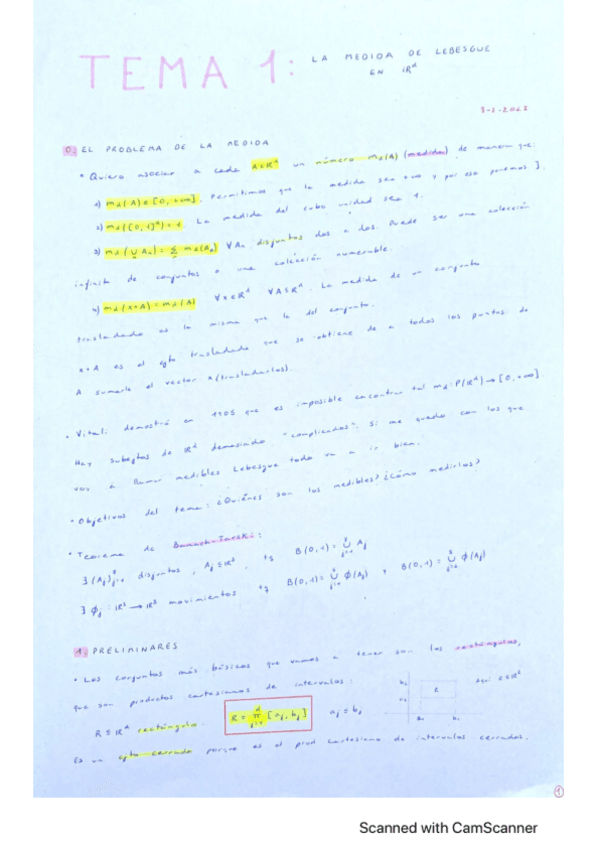 TEMA 1: LA MEDIDA DE LEBESGUE
EN ℝᵈ
0. EL PROBLEMA DE LA MEDIDA
• Quiero asociar a cada A⊂ℝᵈ un número m_d(A) (medida) de manera que:
1) m_d(A)∈[0,+∞]. Permitimos que la medida sea +∞ y por eso ponemos ].
2) m_d([0,1]ᵈ)=1. La medida del cubo unidad sea 1.
3) m_d(∪Aₙ)=Σ m_d(Aₙ) ∀Aₙ disjuntos dos a dos. Puede ser una colección
infinita de conjuntos o una colección numerable.
4) m_d(x+A)=m_d(A) ∀x∈ℝᵈ ∀A⊆ℝᵈ. La medida de un conjunto
trasladado es la misma que la del conjunto.
x+A es el cjto trasladado que se obtiene de a todos los puntos de
A sumarle el vector x (trasladarlos).
• Vitali demostró en 1905 que es imposible encontrar tal m_d: P(ℝᵈ)→[0,+∞]
Hay subcjtos de ℝᵈ demasiado "complicados". Si me quedo con los que
voy a llamar medibles Lebesgue todo va a ir bien.
• Objetivos del tema: ¿Quiénes son los medibles? ¿Cómo medirlos?
• Teorema de Banach-Tarski:
∃(Aⱼ)ⱼ₌₁ disjuntos, Aⱼ⊆ℝ³, tq B(0,1)=∪ Aⱼ
∃ϕⱼ: ℝ³→ℝ³ movimientos tq B(0,1)=∪ ϕ(Aⱼ) y B(0,1)=∪ ϕ(Aⱼ)
1. PRELIMINARES
• Los conjuntos más básicos que vamos a tener son los rectángulos,
que son productos cartesianos de intervalos:
R⊆ℝᵈ rectángulo R=∏ⱼ₌₁ᵈ[aⱼ,bⱼ] aⱼ≤bⱼ R
Es un cjto cerrado porque es el prod cartesiano de intervalos cerrados.
1
Scanned with CamScanner